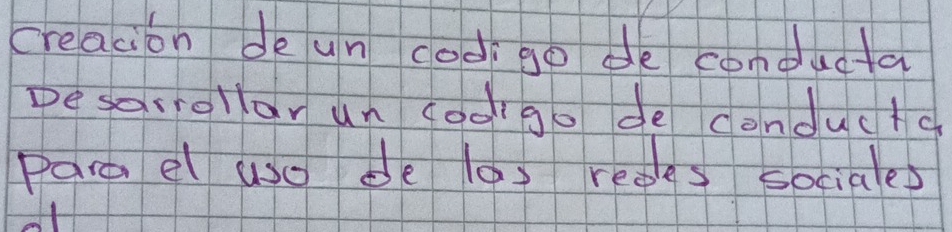 creación de un codigo de conducta
Desarrollar un codigo de conducta
para el uso de las redes sociales